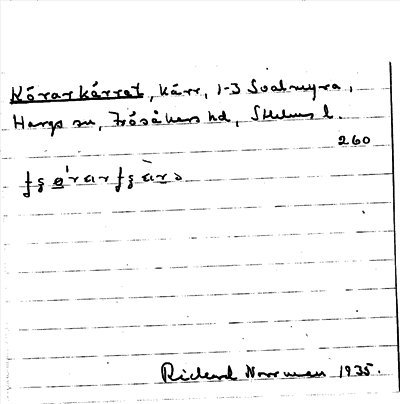 Körarkärret, kärr, 1-3 Svalmyra,
Hargs sn, Frösåkers hd, Sthlms l.
260
Richard Norrman 1935.